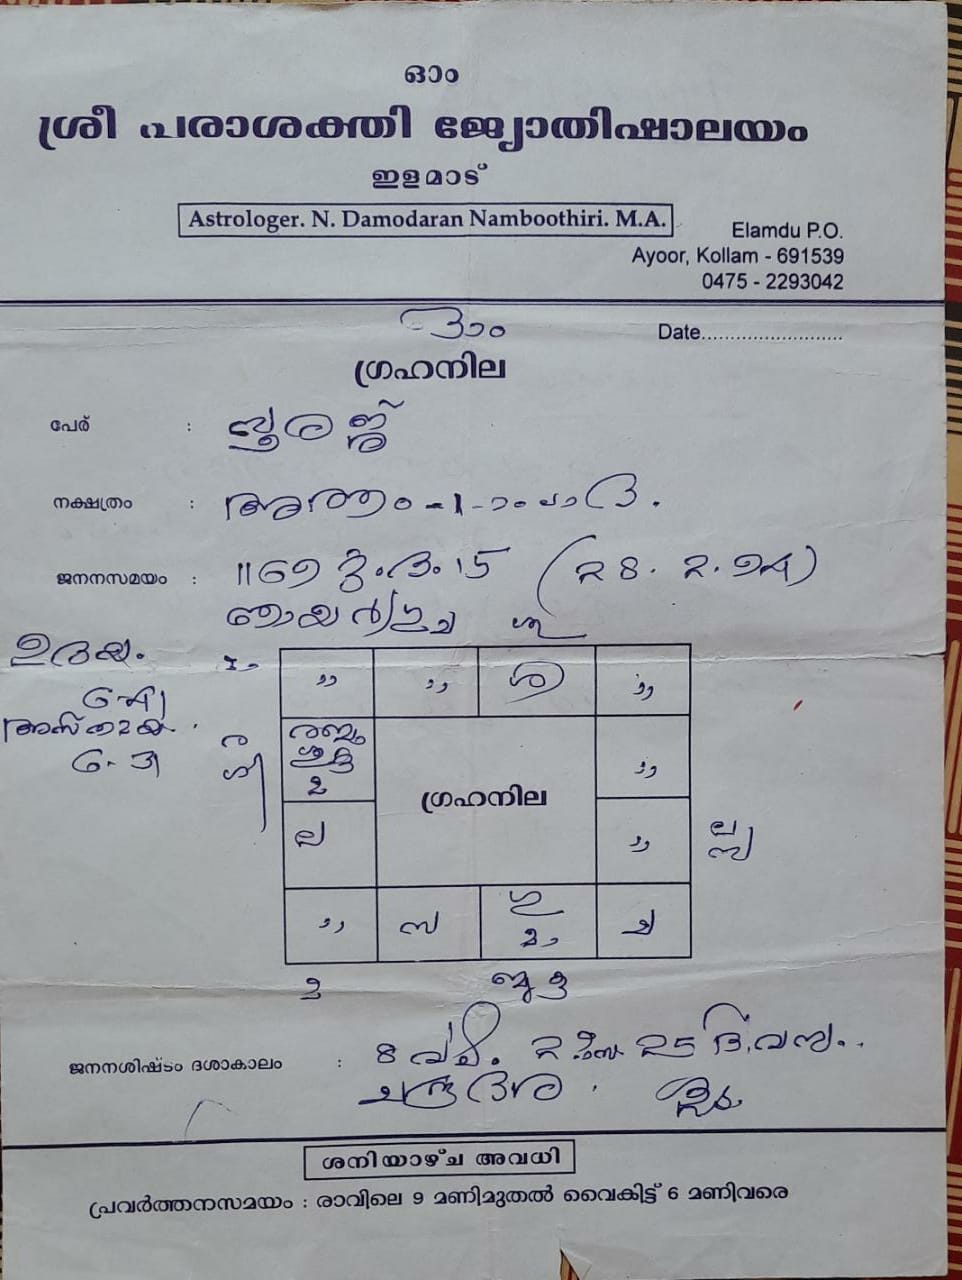 ഓം
ശ്രീ പരാശക്തി ജ്യോതിഷാലയം
ഇളമാട്
Astrologer. N. Damodaran Namboothiri. M.A.
Elamdu P.O.
Ayoor, Kollam - 691539
0475 - 2293042
ഓം
Date........................
ഗ്രഹനില
പേര് : സൂരജ്
നക്ഷത്രം : അത്തം - 1 - ാം പാദം.
ജനനസമയം : 1169 15 (28. 2. 94)
ഞായർ
ഉദയം.
6-41
അസ്തമയം.
6-31
ശ
ഗ്രഹനില
ല
സ
ഗു
മാ
ച
ജനനശിഷ്ടം ദശാകാലം : 8 വർഷം. 2 മാസം 25 ദിവസം..
ചന്ദ്രദശ
ശനിയാഴ്ച അവധി
പ്രവർത്തനസമയം : രാവിലെ 9 മണിമുതൽ വൈകിട്ട് 6 മണിവരെ